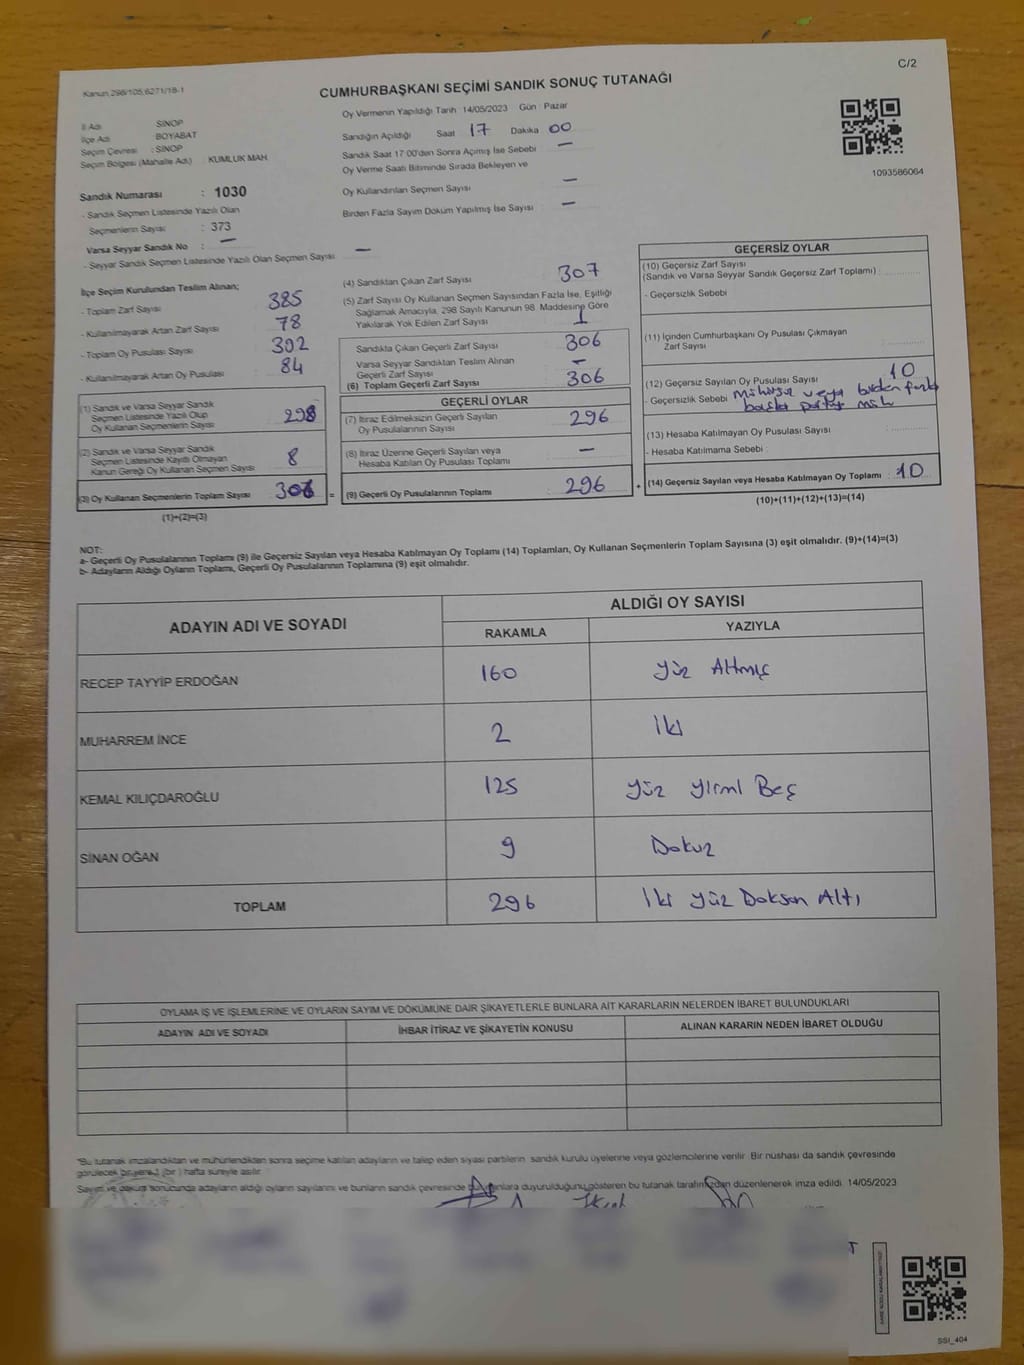 C/2
Kanun 298/105,6271/18-1
CUMHURBAŞKANI SEÇİMİ SANDIK SONUÇ TUTANAĞI
İl Adı : SİNOP
İlçe Adı : BOYABAT
Seçim Çevresi : SİNOP
Seçim Bölgesi (Mahalle Adı) : KUMLUK MAH.
Sandık Numarası : 1030
- Sandık Seçmen Listesinde Yazılı Olan
Seçmenlerin Sayısı : 373
Varsa Seyyar Sandık No : —
- Seyyar Sandık Seçmen Listesinde Yazılı Olan Seçmen Sayısı : —
Oy Vermenin Yapıldığı Tarih : 14/05/2023 Gün : Pazar
Sandığın Açıldığı Saat 17 Dakika 00
Sandık Saat 17:00'den Sonra Açımış İse Sebebi : —
Oy Verme Saati Bitiminde Sırada Bekleyen ve
Oy Kullandırılan Seçmen Sayısı : —
Birden Fazla Sayım Döküm Yapılmış İse Sayısı : —
1093586064
İlçe Seçim Kurulundan Teslim Alınan;
- Toplam Zarf Sayısı : 385
- Kullanılmayarak Artan Zarf Sayısı : 78
- Toplam Oy Pusulası Sayısı : 392
- Kullanılmayarak Artan Oy Pusulası : 84
(1) Sandık ve Varsa Seyyar Sandık
Seçmen Listesinde Yazılı Olup
Oy Kullanan Seçmenlerin Sayısı : 298
(2) Sandık ve Varsa Seyyar Sandık
Seçmen Listesinde Kayıtlı Olmayan
Kanun Gereği Oy Kullanan Seçmen Sayısı : 8
(3) Oy Kullanan Seçmenlerin Toplam Sayısı : 306
(1)+(2)=(3)
(4) Sandıktan Çıkan Zarf Sayısı : 307
(5) Zarf Sayısı Oy Kullanan Seçmen Sayısından Fazla İse, Eşitliği
Sağlamak Amacıyla, 298 Sayılı Kanunun 98. Maddesine Göre
Yakılarak Yok Edilen Zarf Sayısı : 1
Sandıkta Çıkan Geçerli Zarf Sayısı : 306
Varsa Seyyar Sandıktan Teslim Alınan
Geçerli Zarf Sayısı : —
(6) Toplam Geçerli Zarf Sayısı : 306
GEÇERLİ OYLAR
(7) İtiraz Edilmeksizin Geçerli Sayılan
Oy Pusulalarının Sayısı : 296
(8) İtiraz Üzerine Geçerli Sayılan veya
Hesaba Katılan Oy Pusulası Toplamı : —
= (9) Geçerli Oy Pusulalarının Toplamı : 296
GEÇERSİZ OYLAR
(10) Geçersiz Zarf Sayısı
(Sandık ve Varsa Seyyar Sandık Geçersiz Zarf Toplamı) :
- Geçersizlik Sebebi :
(11) İçinden Cumhurbaşkanı Oy Pusulası Çıkmayan
Zarf Sayısı :
(12) Geçersiz Sayılan Oy Pusulası Sayısı : 10
- Geçersizlik Sebebi : Mühürsüz veya birden fazla
başka partiye müh
(13) Hesaba Katılmayan Oy Pusulası Sayısı :
- Hesaba Katılmama Sebebi :
+ (14) Geçersiz Sayılan veya Hesaba Katılmayan Oy Toplamı : 10
(10)+(11)+(12)+(13)=(14)
NOT:
a- Geçerli Oy Pusulalarının Toplamı (9) ile Geçersiz Sayılan veya Hesaba Katılmayan Oy Toplamı (14) Toplamları, Oy Kullanan Seçmenlerin Toplam Sayısına (3) eşit olmalıdır. (9)+(14)=(3)
b- Adayların Aldığı Oyların Toplamı, Geçerli Oy Pusulalarının Toplamına (9) eşit olmalıdır.
ADAYIN ADI VE SOYADI ALDIĞI OY SAYISI
RAKAMLA YAZIYLA
RECEP TAYYİP ERDOĞAN 160 Yüz Altmış
MUHARREM İNCE 2 İki
KEMAL KILIÇDAROĞLU 125 Yüz Yirmi Beş
SİNAN OĞAN 9 Dokuz
TOPLAM 296 İki Yüz Doksan Altı
OYLAMA İŞ VE İŞLEMLERİNE VE OYLARIN SAYIM VE DÖKÜMÜNE DAİR ŞİKAYETLERLE BUNLARA AİT KARARLARIN NELERDEN İBARET BULUNDUKLARI
ADAYIN ADI VE SOYADI İHBAR İTİRAZ VE ŞİKAYETİN KONUSU ALINAN KARARIN NEDEN İBARET OLDUĞU
"Bu tutanak imzalandıktan ve mühürlendikten sonra seçime katılan adayların ve talep eden siyasi partilerin sandık kurulu üyelerine veya gözlemcilerine verilir. Bir nushası da sandık çevresinde
görülecek bir yere 1 (bir ) hafta süreyle asılır.
Sayım ve döküm sonucunda adayların aldığı oyların sayılarını ve bunların sandık çevresinde duyurulduğunu gösteren bu tutanak tarafımızdan düzenlenerek imza edildi. 14/05/2023
SSI_404